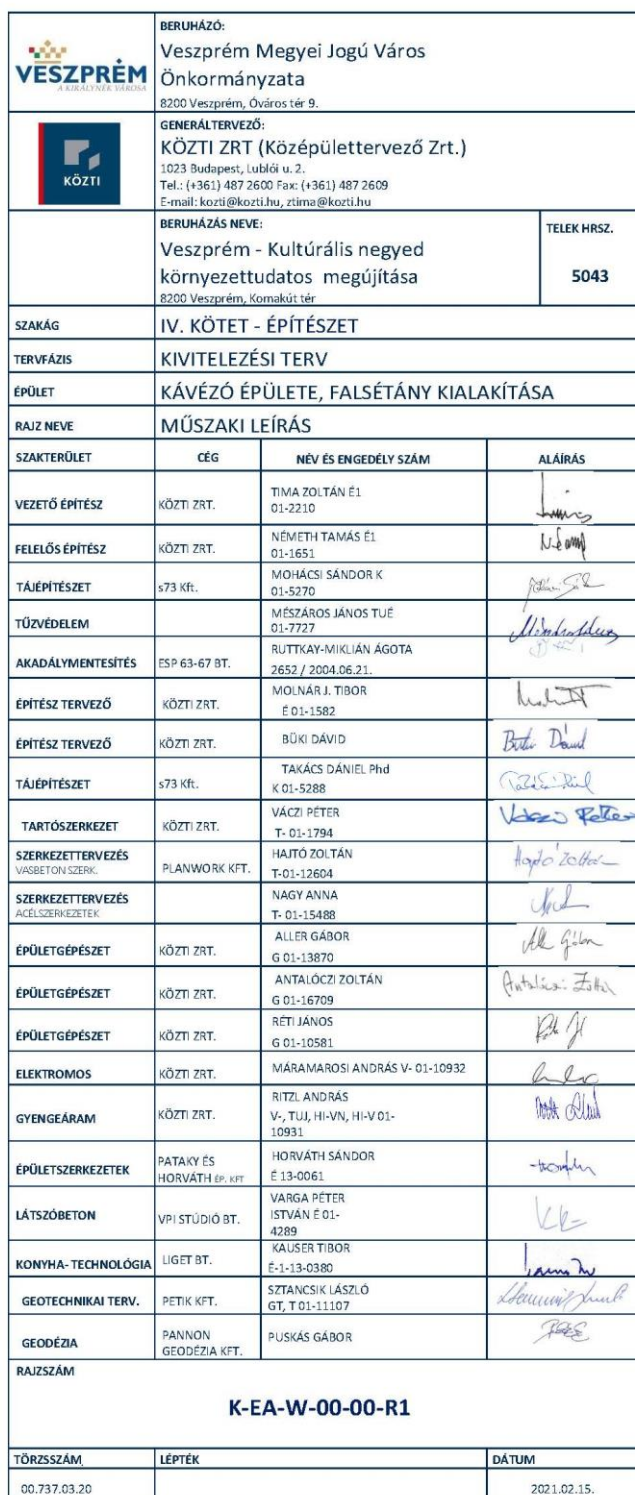 VESZPRÉM
A KIRÁLYNÉK VÁROSA
BERUHÁZÓ:
Veszprém Megyei Jogú Város
Önkormányzata
8200 Veszprém, Óváros tér 9.
KÖZTI
GENERÁLTERVEZŐ:
KÖZTI ZRT (Középülettervező Zrt.)
1023 Budapest, Lublói u. 2.
Tel.: (+361) 487 2600 Fax: (+361) 487 2609
E-mail: kozti@kozti.hu, ztima@kozti.hu
BERUHÁZÁS NEVE:
Veszprém - Kultúrális negyed
környezettudatos megújítása
8200 Veszprém, Komakút tér
TELEK HRSZ.
5043
SZAKÁG IV. KÖTET - ÉPÍTÉSZET
TERVFÁZIS KIVITELEZÉSI TERV
ÉPÜLET KÁVÉZÓ ÉPÜLETE, FALSÉTÁNY KIALAKÍTÁSA
RAJZ NEVE MŰSZAKI LEÍRÁS
SZAKTERÜLET CÉG NÉV ÉS ENGEDÉLY SZÁM ALÁÍRÁS
VEZETŐ ÉPÍTÉSZ KÖZTI ZRT. TIMA ZOLTÁN É1
01-2210
FELELŐS ÉPÍTÉSZ KÖZTI ZRT. NÉMETH TAMÁS É1
01-1651
TÁJÉPÍTÉSZET s73 Kft. MOHÁCSI SÁNDOR K
01-5270
TŰZVÉDELEM MÉSZÁROS JÁNOS TUÉ
01-7727
AKADÁLYMENTESÍTÉS ESP 63-67 BT. RUTTKAY-MIKLIÁN ÁGOTA
2652 / 2004.06.21.
ÉPÍTÉSZ TERVEZŐ KÖZTI ZRT. MOLNÁR J. TIBOR
É 01-1582
ÉPÍTÉSZ TERVEZŐ KÖZTI ZRT. BÜKI DÁVID Büki Dávid
TÁJÉPÍTÉSZET s73 Kft. TAKÁCS DÁNIEL Phd
K 01-5288
TARTÓSZERKEZET KÖZTI ZRT. VÁCZI PÉTER
T- 01-1794
SZERKEZETTERVEZÉS
VASBETON SZERK. PLANWORK KFT. HAJTÓ ZOLTÁN Hajtó Zoltán
T-01-12604
SZERKEZETTERVEZÉS
ACÉLSZERKEZETEK NAGY ANNA
T- 01-15488
ÉPÜLETGÉPÉSZET KÖZTI ZRT. ALLER GÁBOR
G 01-13870
ÉPÜLETGÉPÉSZET KÖZTI ZRT. ANTALÓCZI ZOLTÁN Antalóczi Zoltán
G 01-16709
ÉPÜLETGÉPÉSZET KÖZTI ZRT. RÉTI JÁNOS
G 01-10581
ELEKTROMOS KÖZTI ZRT. MÁRAMAROSI ANDRÁS V- 01-10932
GYENGEÁRAM KÖZTI ZRT. RITZL ANDRÁS
V-, TUJ, HI-VN, HI-V 01-
10931
ÉPÜLETSZERKEZETEK PATAKY ÉS
HORVÁTH ÉP. KFT HORVÁTH SÁNDOR
É 13-0061
LÁTSZÓBETON VPI STÚDIÓ BT. VARGA PÉTER
ISTVÁN É 01-
4289
KONYHA- TECHNOLÓGIA LIGET BT. KAUSER TIBOR
É-1-13-0380
GEOTECHNIKAI TERV. PETIK KFT. SZTANCSIK LÁSZLÓ
GT, T 01-11107
GEODÉZIA PANNON
GEODÉZIA KFT. PUSKÁS GÁBOR
RAJZSZÁM
K-EA-W-00-00-R1
TÖRZSSZÁM LÉPTÉK DÁTUM
00.737.03.20 2021.02.15.